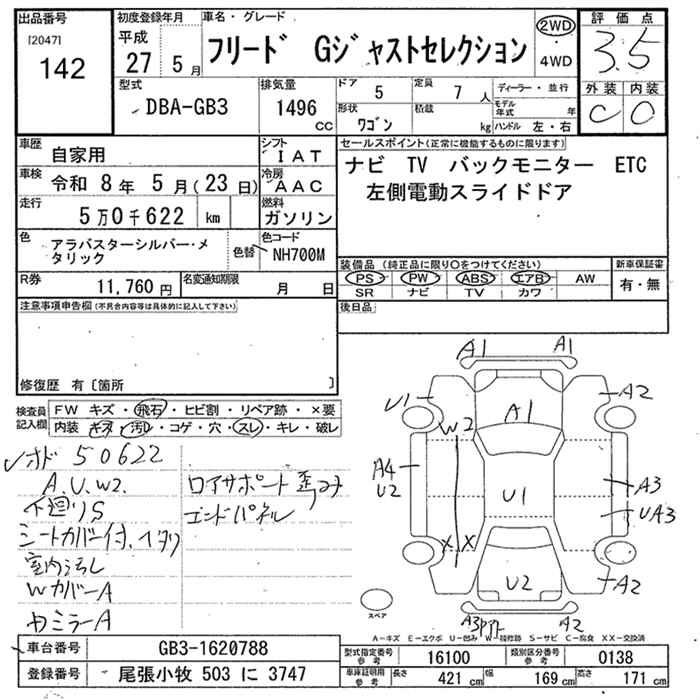 出品番号
[2047]
142
初度登録年月
平成
27 5月
車名・グレード
フリード Gジャストセレクション
2WD
・
4WD
評価点
3.5
外装 内装
C C
型式
DBA-GB3
排気量
1496 CC
ドア 5
定員 7人
形状 ワゴン
積載 kg
ディーラー・並行
モデル年式 年
ハンドル 左・右
車歴
自家用
シフト
IAT
車検 令和 8年 5月(23日)
冷房
AAC
走行
5万0千622 km
燃料
ガソリン
色
アラバスターシルバー・メタリック
色替
色コード
NH700M
R券
11,760円
名変通知期限
月 日
セールスポイント(正常に機能するものに限ります)
ナビ TV バックモニター ETC
左側電動スライドドア
装備品 (純正品に限り○をつけてください)
PS PW ABS エアB AW
SR ナビ TV カワ
新車保証書
有・無
後日品
注意事項申告欄(不具合内容等は具体的に記入して下さい)
修復歴 有〔箇所 〕
検査員記入欄
FW キズ・飛石・ヒビ割・リペア跡・×要
内装 キズ・汚れ・コゲ・穴・スレ・キレ・破レ
オド 50622
A.U.W2.
下廻りS
シートカバー付.イタミ
室内汚れ
WカバーA
ロアサポート歪み
エンドパネル
A1 A1
U1 A2
A1
W2
A4
U2
U1
A3
UA3
X X
U2
A2
A3 A2
スペア
A-キズ E-エクボ U-凹み W-補修跡 S-サビ C-腐食 XX-交換済
車台番号
GB3-1620788
登録番号
尾張小牧 503 に 3747
型式指定番号
参考
16100
類別区分番号
参考
0138
車庫証明用
参考
長さ 421 cm
幅 169 cm
高さ 171 cm